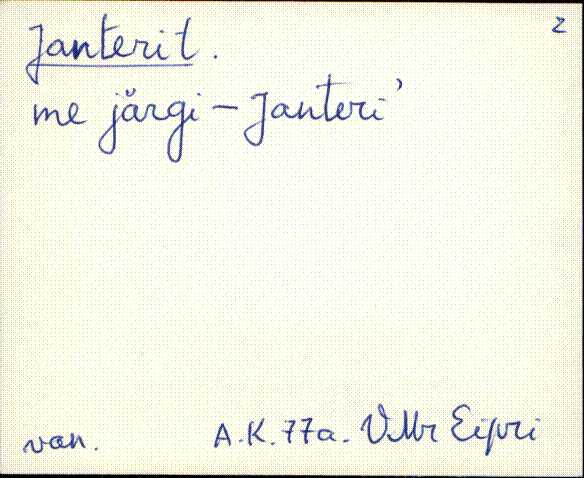 2
Janterit.
me järgi – Janteri'
van. A.K. 77a. VMr Eipri